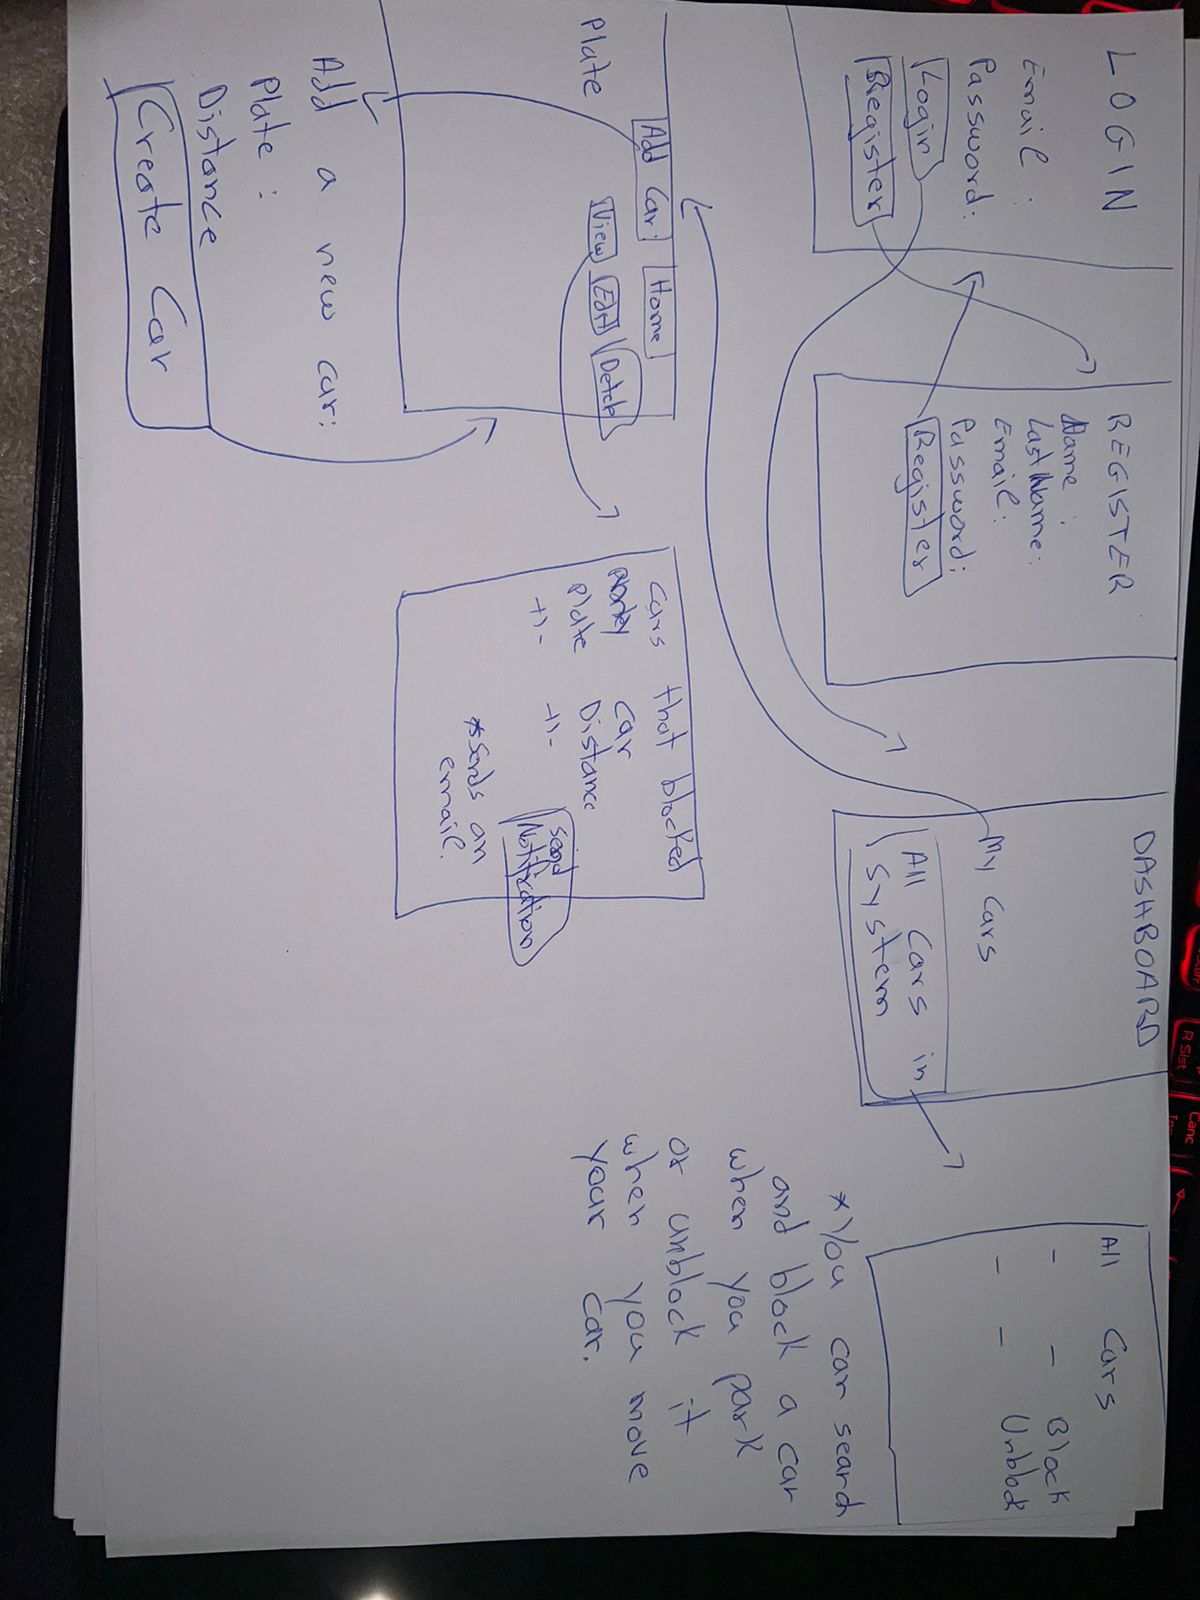 LOGIN
Email :
Password:
Login
Register
REGISTER
Name :
Last Name:
Email:
Password:
Register
DASHBOARD
My Cars
All Cars in
System
All Cars
- - Block
- - Unblock
*You can search
and block a car
when you park
or unblock it
when you move
your car.
Add Car Home
Plate View Edit Delete
Cars that blocked
car
Plate Distance
-11- -11-
Send
Notification
*Sends an
email.
Add a new car:
Plate :
Distance
Create Car
R Sist